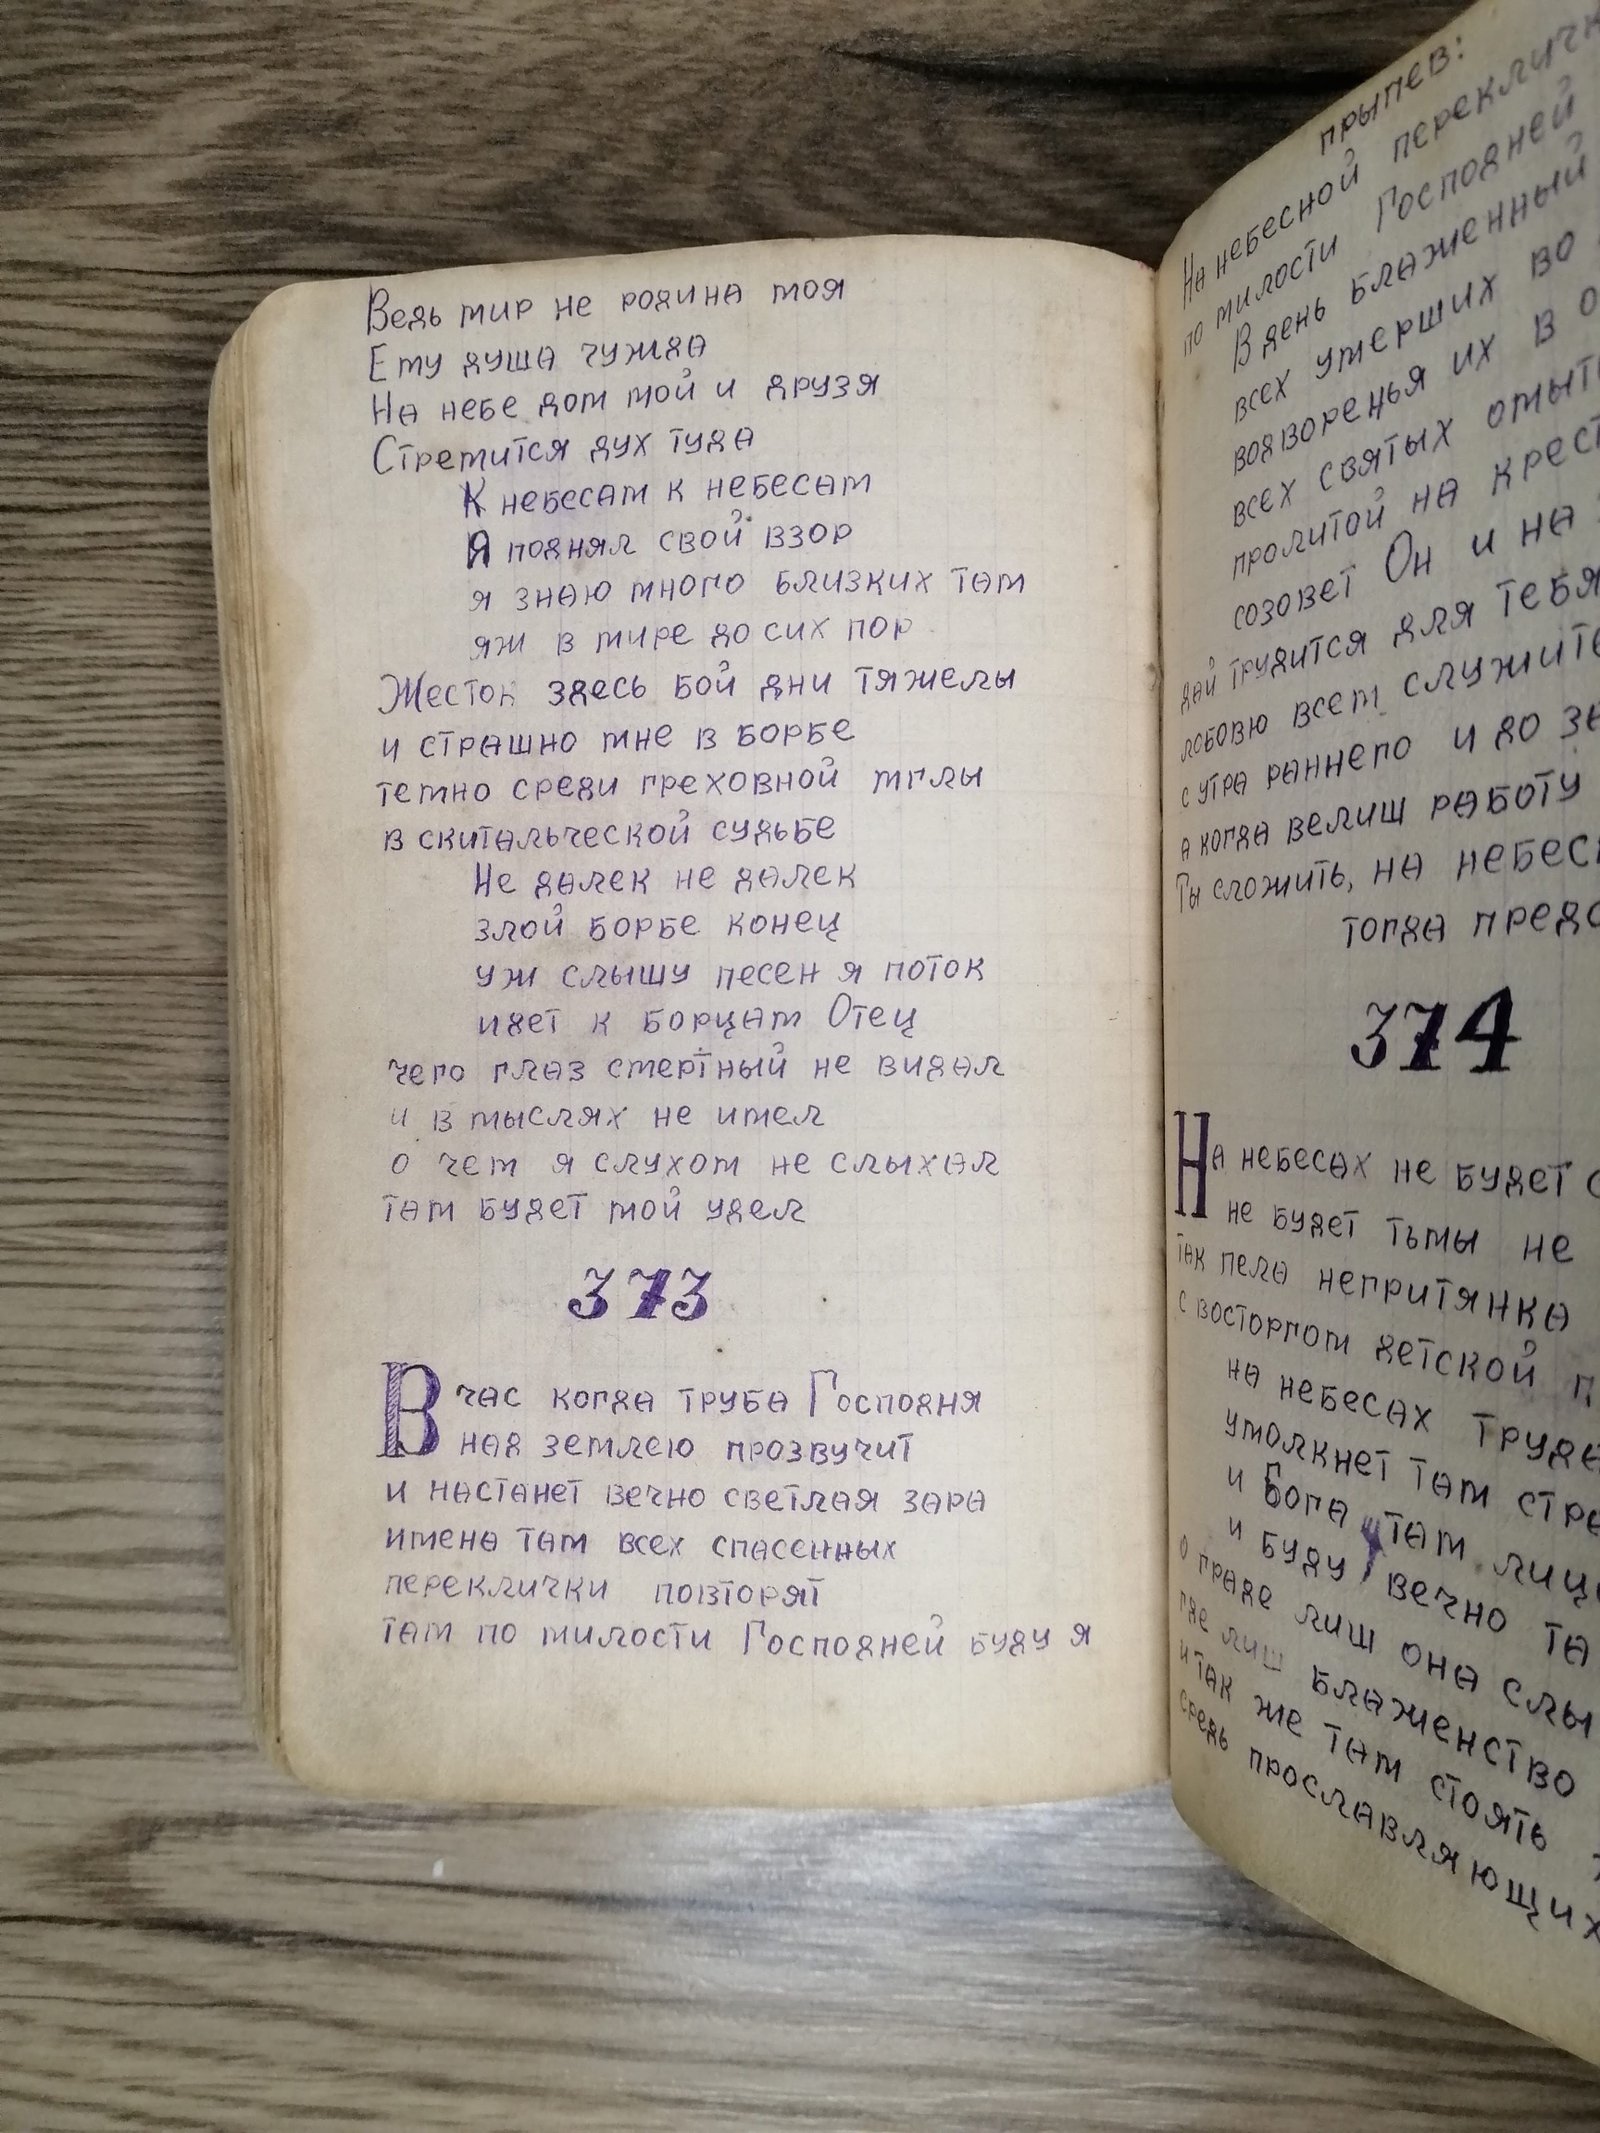 Ведь мир не родина моя
Ему душа чужда
На небе дом мой и друзя
Стремится дух туда
К небесам к небесам
Я поднял свой взор
я знаю много близких там
яж в мире до сих пор
Жесток здесь бой дни тяжелы
и страшно мне в борбе
темно среди греховной мглы
в скитальческой судьбе
Не далек не далек
злой борбе конец
уж слышу песен я поток
идет к борцам Отец
чего глаз смертный не видал
и в мыслях не имел
о чем я слухом не слыхал
там будет мой удел
373
В час когда труба Господня
над землею прозвучит
и настанет вечно светлая зара
имена там всех спасенных
переклички повторят
там по милости Господней буду я
прыпев:
На небесной
по милости Господней
В день блаженный
всех умерших во
водворенья их в
всех святых
пролитой на
созовет Он и на
дай трудится для тебя
лобовю всем
с утра раннего и до
а когда велиш работу
Ты сложить, на
тогда
374
На небесах не будет
не будет тьмы не
так пела негритянка
с восторгом детской
на небесах
умолкнет там
и Бога там
и буду вечно
о граде лиш она
где лиш блаженство
и так же там стоять
средь прославляющих